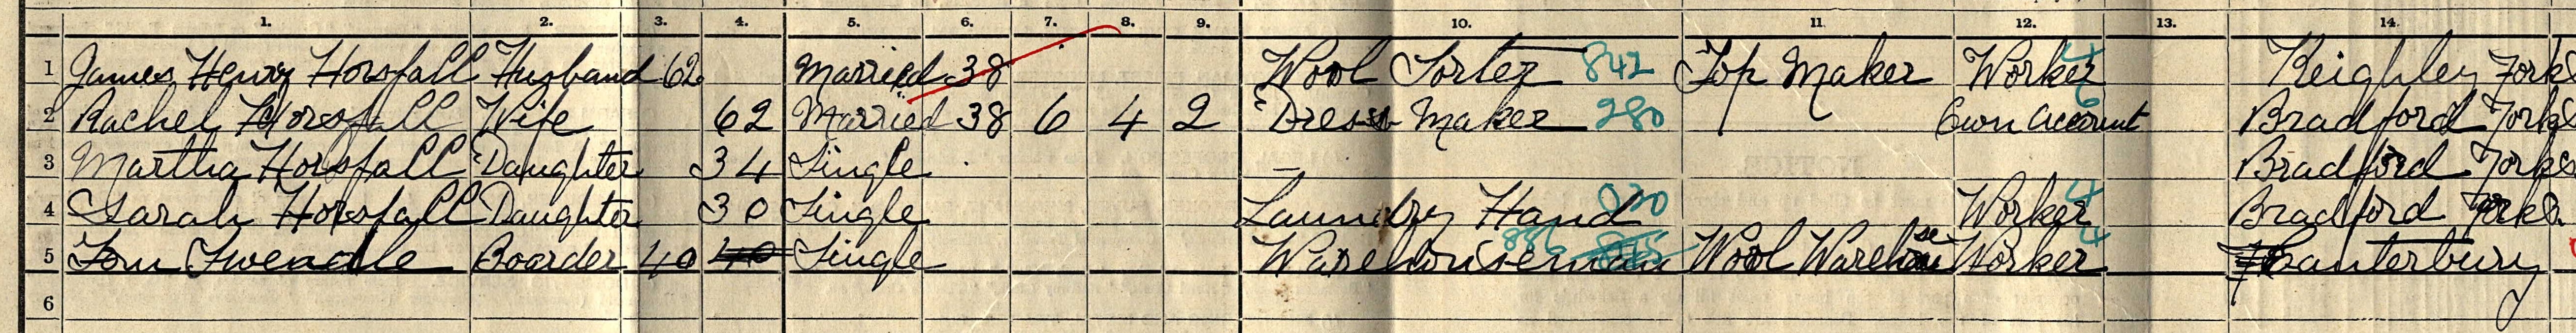 1. 2. 3. 4. 5. 6. 7. 8. 9. 10. 11. 12. 13. 14.
1 James Henry Horsfall Husband 62 Married 38 Wool Sorter 842 Top Maker Worker 4 Keighley Yorks
2 Rachel Horsfall Wife 62 Married 38 6 4 2 Dress Maker 280 Own Account 6 Bradford Yorks
3 Martha Horsfall Daughter 34 Single Bradford Yorks
4 Sarah Horsfall Daughter 30 Single Laundry Hand Worker 4 Bradford Yorks
5 Tom Tweadle Boarder 40 40 Single Warehouseman 886 Wool Warehouse Worker 4 Canterbury
6